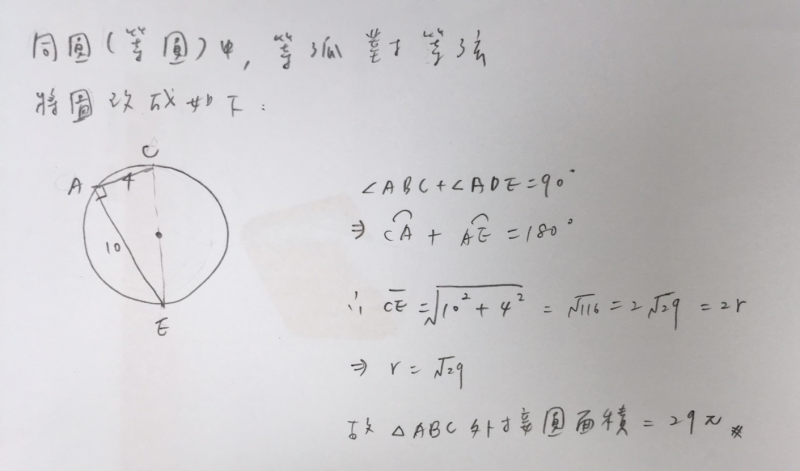 同圓(等圓)中,等弧對等弦
將圖改成如下:
C
A 4
10
E
∠ABC+∠ADE=90°
⇒ C͡A + A͡E = 180°
∴ C̅E̅ = √(10²+4²) = √116 = 2√29 = 2r
⇒ r = √29
故 △ABC外接圓面積 = 29π